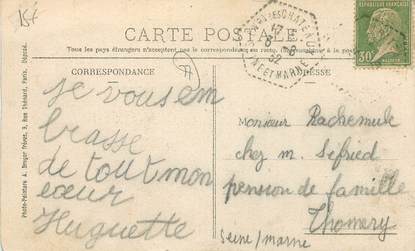 15f
CARTE POSTALE
Tous les pays étrangers n'acceptent pas la correspondance au recto.
CORRESPONDANCE
ADRESSE
je vous em
brasse
de tout mon
cœur
Huguette
Monsieur Rachemule
chez m. Sefried
pension de famille
Thomery
seine/marne
Photo-Peinture A. Breger Frères, 9, Rue Thénard, Paris. Déposé.
ET MARNE
32
30c